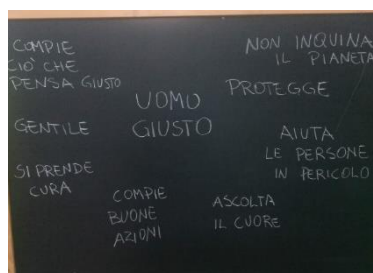 COMPIE
CIÒ CHE
PENSA GIUSTO
NON INQUINA
IL PIANETA
PROTEGGE
UOMO
GIUSTO
GENTILE
AIUTA
LE PERSONE
IN PERICOLO
SI PRENDE
CURA
COMPIE
BUONE
AZIONI
ASCOLTA
IL CUORE